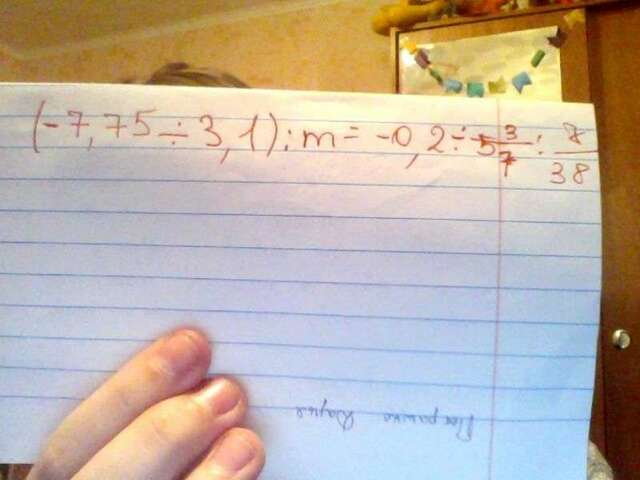 (-7,75 ÷ 3,1) : m = -0,2 ÷ 5 3/7 : 8/38